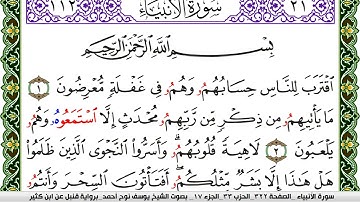 ٢١ سُورَةُ الأَنبِيَاءِ ١١٢
بِسْمِ اللَّهِ الرَّحْمَٰنِ الرَّحِيمِ
اَقْتَرَبَ لِلنَّاسِ حِسَابُهُمُۥ وَهُمُۥ فِي غَفْلَةٍ مُّعْرِضُونَ ١
مَا يَأْتِيهِمُۥ مِن ذِكْرٍ مِّن رَّبِّهِمُۥ مُحْدَثٍ إِلَّا اَسْتَمَعُوهُۥ وَهُمُۥ
يَلْعَبُونَ ٢ لَاهِيَةً قُلُوبُهُمُۥ وَأَسَرُّوا النَّجْوَى الَّذِينَ ظَلَمُوا
هَلْ هَٰذَا إِلَّا بَشَرٌ مِّثْلُكُمُۥ أَفَتَأْتُونَ السِّحْرَ وَأَنتُمُۥ
سورة الأنبياء _ الصفحة ٣٢٢_ الحزب ٣٣_ الجزء ١٧ _ بصوت الشيخ يوسف نوح أحمد _ برواية قنبل عن ابن كثير